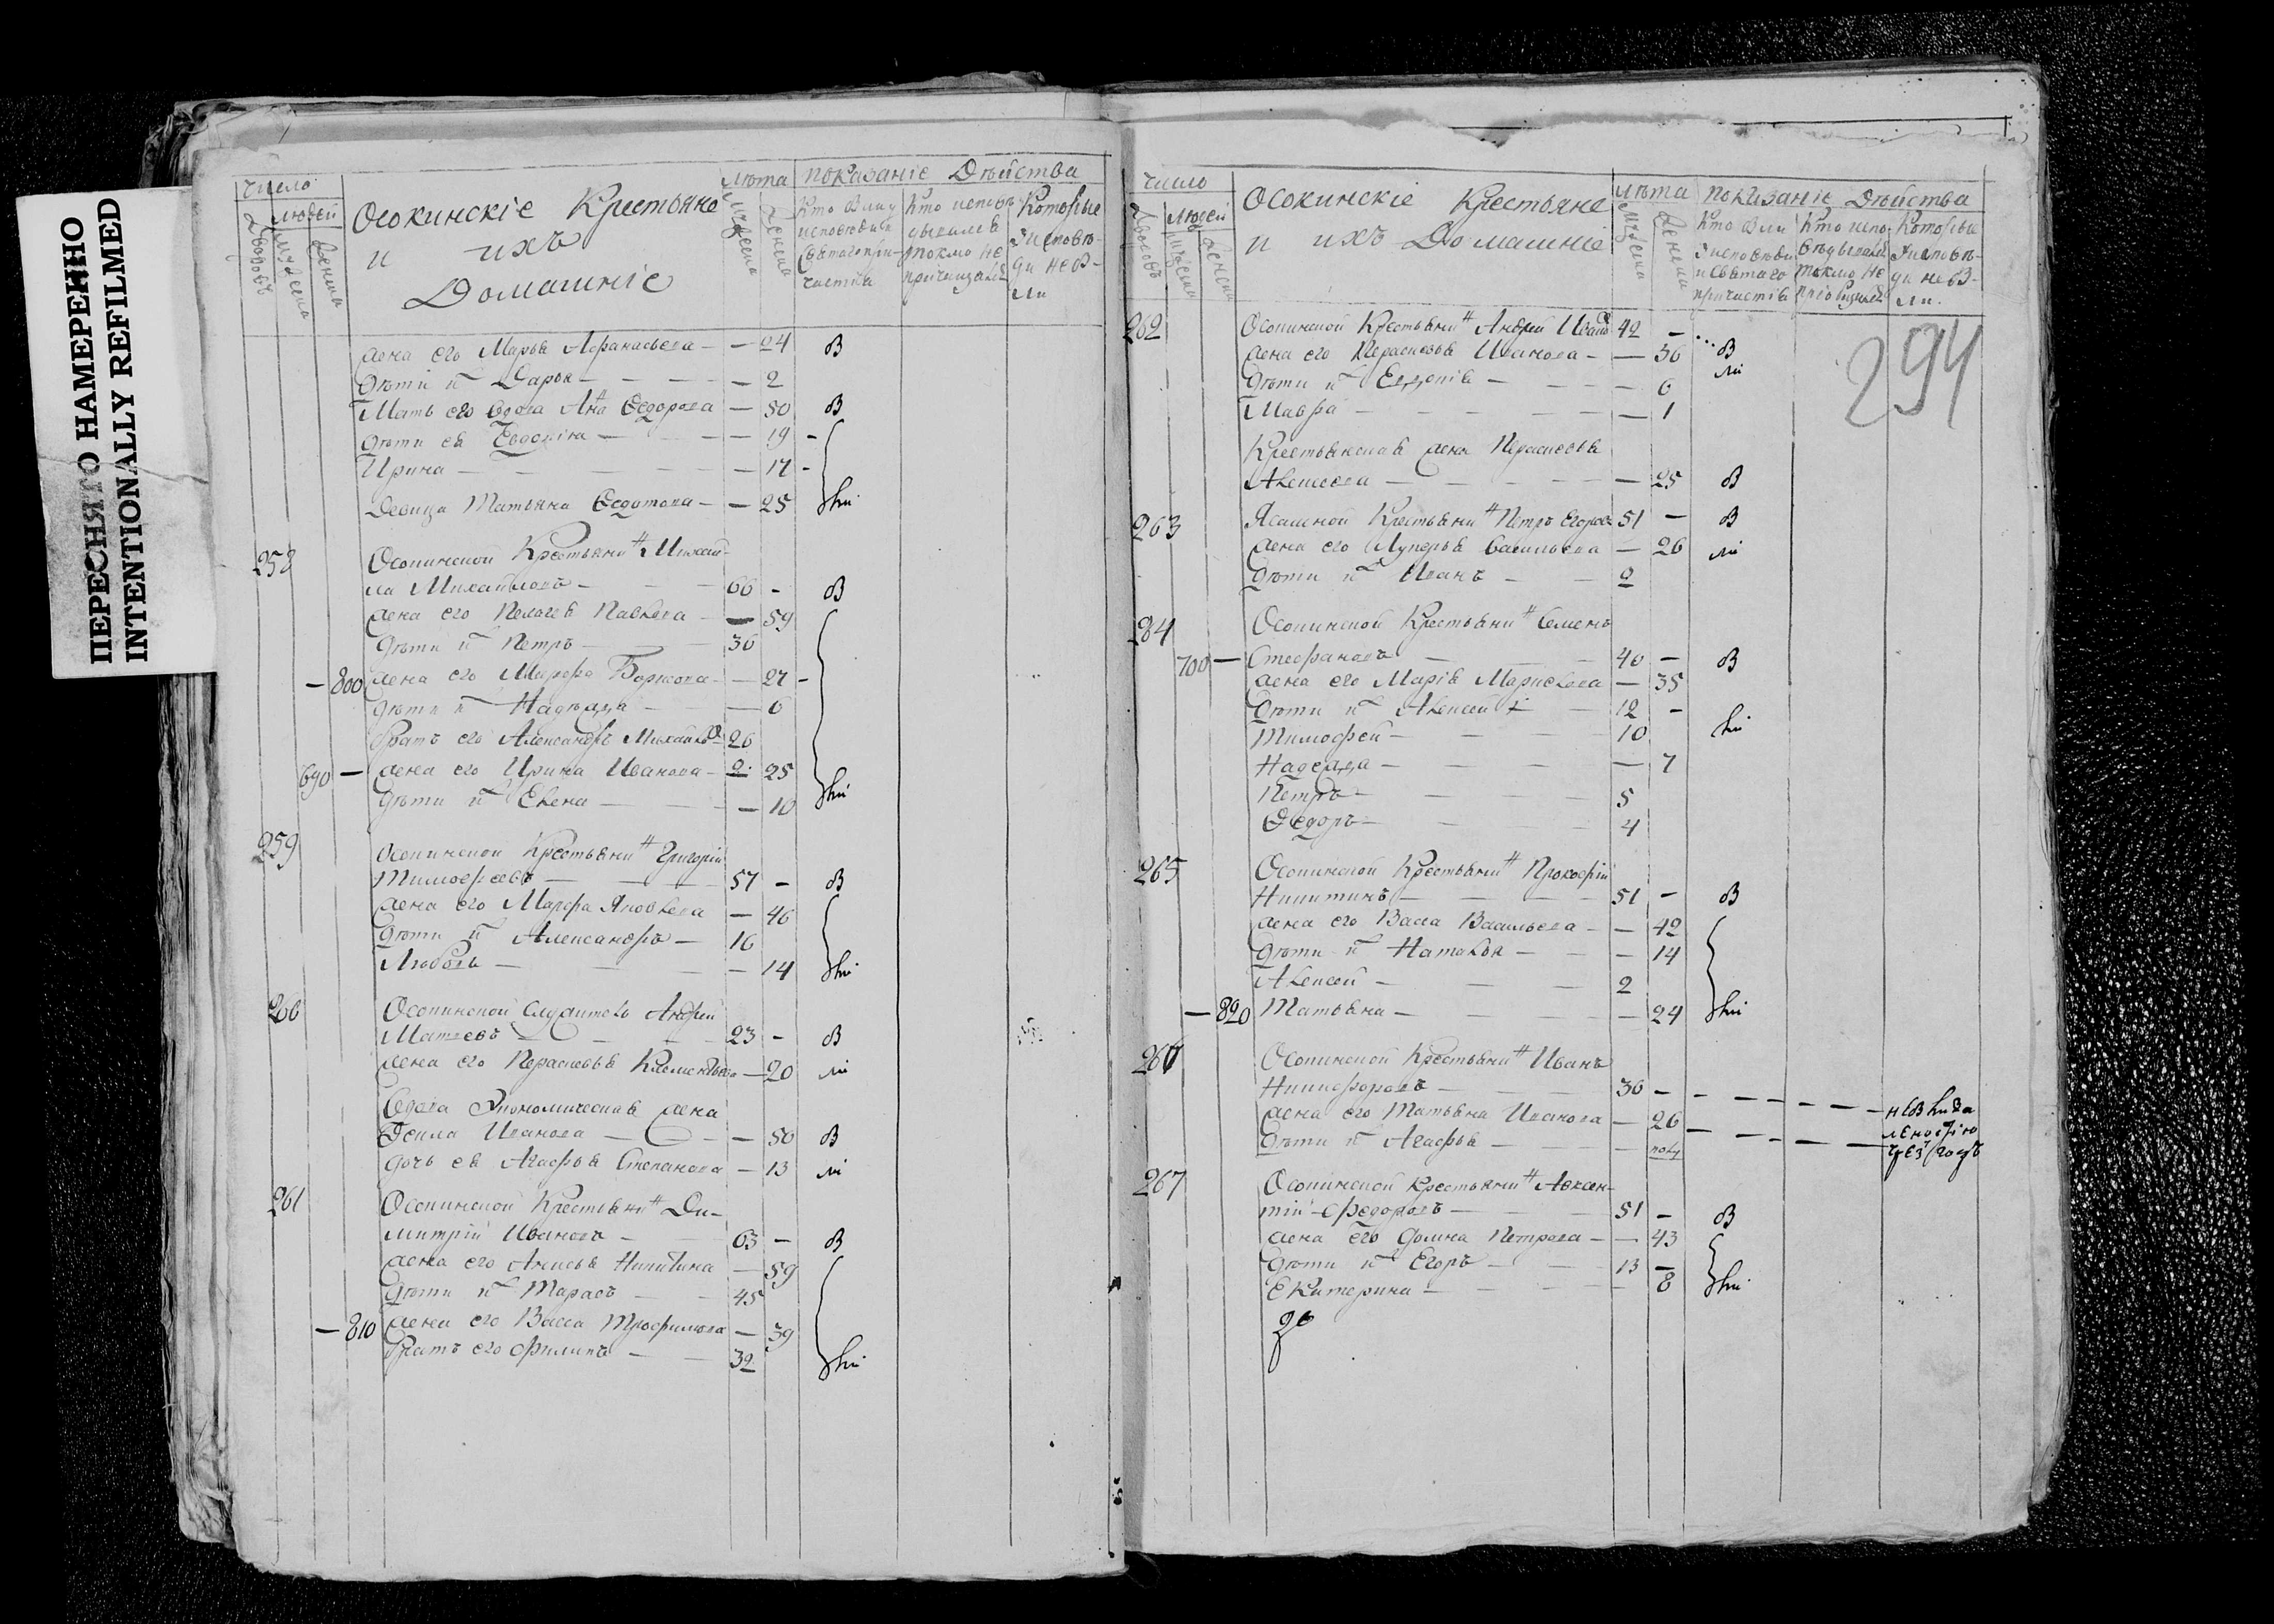 ПЕРЕСНЯТО НАМЕРЕННО
INTENTIONALLY REFILMED
число
Дворовъ
людей
мужеска
женска
Осокинскіе Крестьяне
и ихъ
Домашніе
Лѣта
мужеска
женска
показаніе Дѣйства
Кто былъ у
исповѣди и
святаго при-
частія
Кто исповѣ-
дывался
токмо не
причащался
Которые
у исповѣ-
ди не бы-
ли
жена его Марья Афанасьева — — 24 В
дѣти их Дарья — — — 2
Мать его вдова Анна Ѳедорова — 50 В
дѣти ея Евдокія — — — 19 -
Ирина — — — — — 17 -
Девица Татьяна Ѳедотова — — 25 ли
258 Осокинской Крестьянинъ Михай-
ла Михайловъ — — 66 - В
жена его Пелагея Павлова — — 59
дѣти их Петръ — — 36
— 800 жена его Марфа Борисова — — 27 -
дѣти их Надежда — — 6
братъ его Александръ Михайлов 26
690 — жена его Ирина Иванова — 25
дѣти их Елена — — — 10 ли
259 Осокинской Крестьянинъ Григорій
Тимофеевъ — — — 57 - В
жена его Марфа Яковлева — 46
дѣти их Александръ — 16
Любовь — — — — 14 ли
260 Осокинской служитель Андрей
Матвевъ — — 23 - В
жена его Парасковья Клементьева — 20 ли
Вдова Экономическая жена
Иванова — — — 50 В
дочь ея Агафья Степанова — 13 ли
261 Осокинской Крестьянинъ Ди-
митрій Ивановъ — 63 - В
жена его Анисья Никитина — 59
дѣти их Тарасъ — — 45
— 810 жена его Васса Трофимова — 39
братъ его Филипъ — — 32 ли
число
Дворовъ
людей
мужеска
женска
Осокинскіе Крестьяне
и ихъ Домашніе
лѣта
мужеска
женска
показаніе Дѣйства
Кто были
у исповѣди
и святаго
причастія
Кто испо-
вѣдывался
токмо не
приобщался
Которые
у исповѣ-
ди не бы-
ли.
294
262 Осокинской Крестьянинъ Андрей Иванов 42 — В
жена его Парасковья Иванова — — 36 ли
дѣти их Евдокія — — — 6
Мавра — — — — — 1
Крестьянская жена Парасковья
Алексеева — — — — — 25 В
263 Ясашной Крестьянинъ Петръ Егоров 51 — В
жена его Лукерья Васильева — 26 ли
дѣти их Иванъ — — 2
284 Осокинской Крестьянинъ Семенъ
700 — Стефановъ — — 40 — В
жена его Марія — 35
дѣти их Алексей — 12 -
Тимофей — — — 10 ли
Надежда — — — — 7
Петръ — — — — 5
Ѳедоръ — — — 4
265 Осокинской Крестьянинъ Прокофій
Никитинъ — — — 51 - В
жена его Васса Васильева — — 42
дѣти их Наталья — — — 14
Алексей — — — 2
— 820 Татьяна — — — — 24 ли
266 Осокинской Крестьянинъ Иванъ
Никифоровъ — — 36 — — — — — — не были за
жена его Татьяна Иванова — 26 — — — — леностію
дѣти их Агафья — — — пол чрез годъ
267 Осокинской Крестьянинъ Авксен-
тій Федоровъ — — 51 — В
жена его Домна Петрова — — 43
дѣти их Егоръ — — 13 —
Екатерина — — — — 8 ли